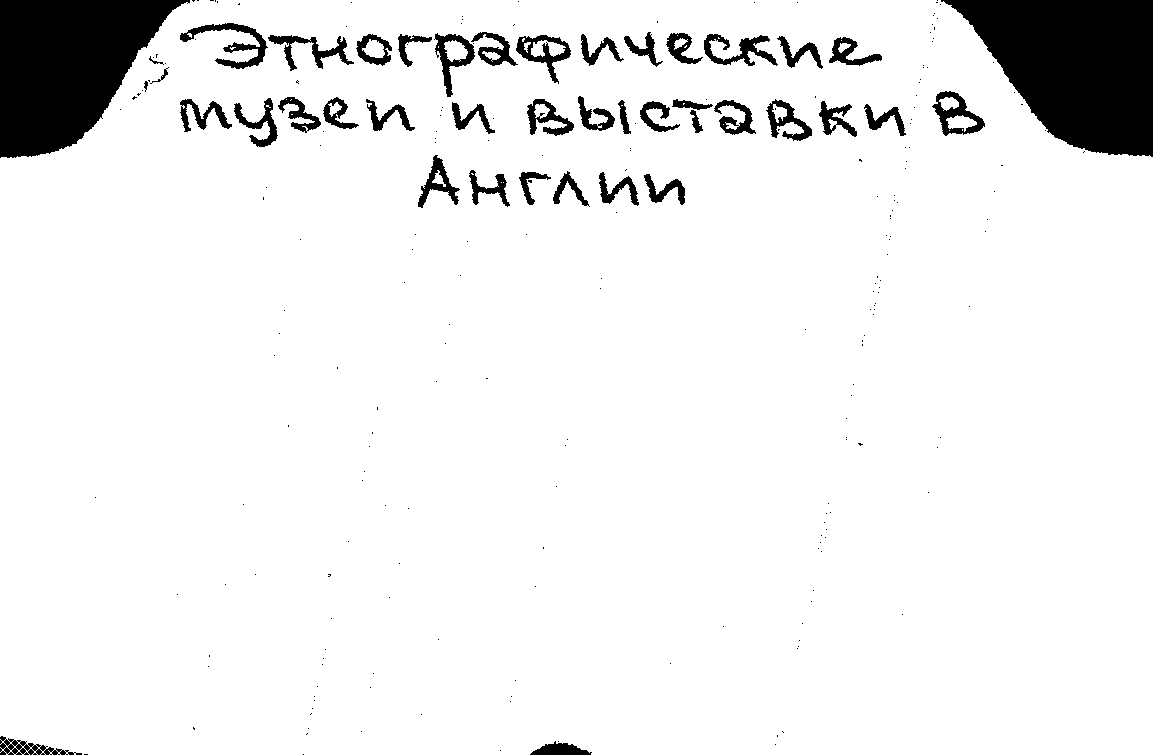 Этнографические
музеи и выставки в
Англии